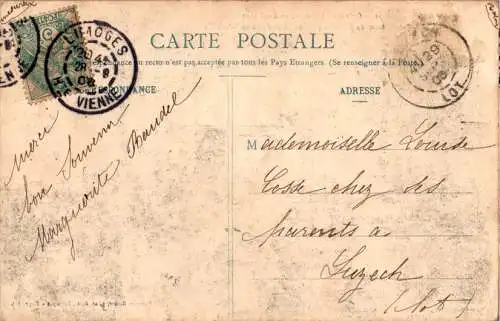 CARTE POSTALE
recto n'est pas acceptée par tous les Pays Etrangers. (Se renseigner à la Poste)
CORRESPONDANCE
ADRESSE
LIMOGES
Hte VIENNE
LOT
Merci
bon Souvenir
Marguerite
Mademoiselle Louise
Cosse chez ses
parents a
Luzech
(Lot)